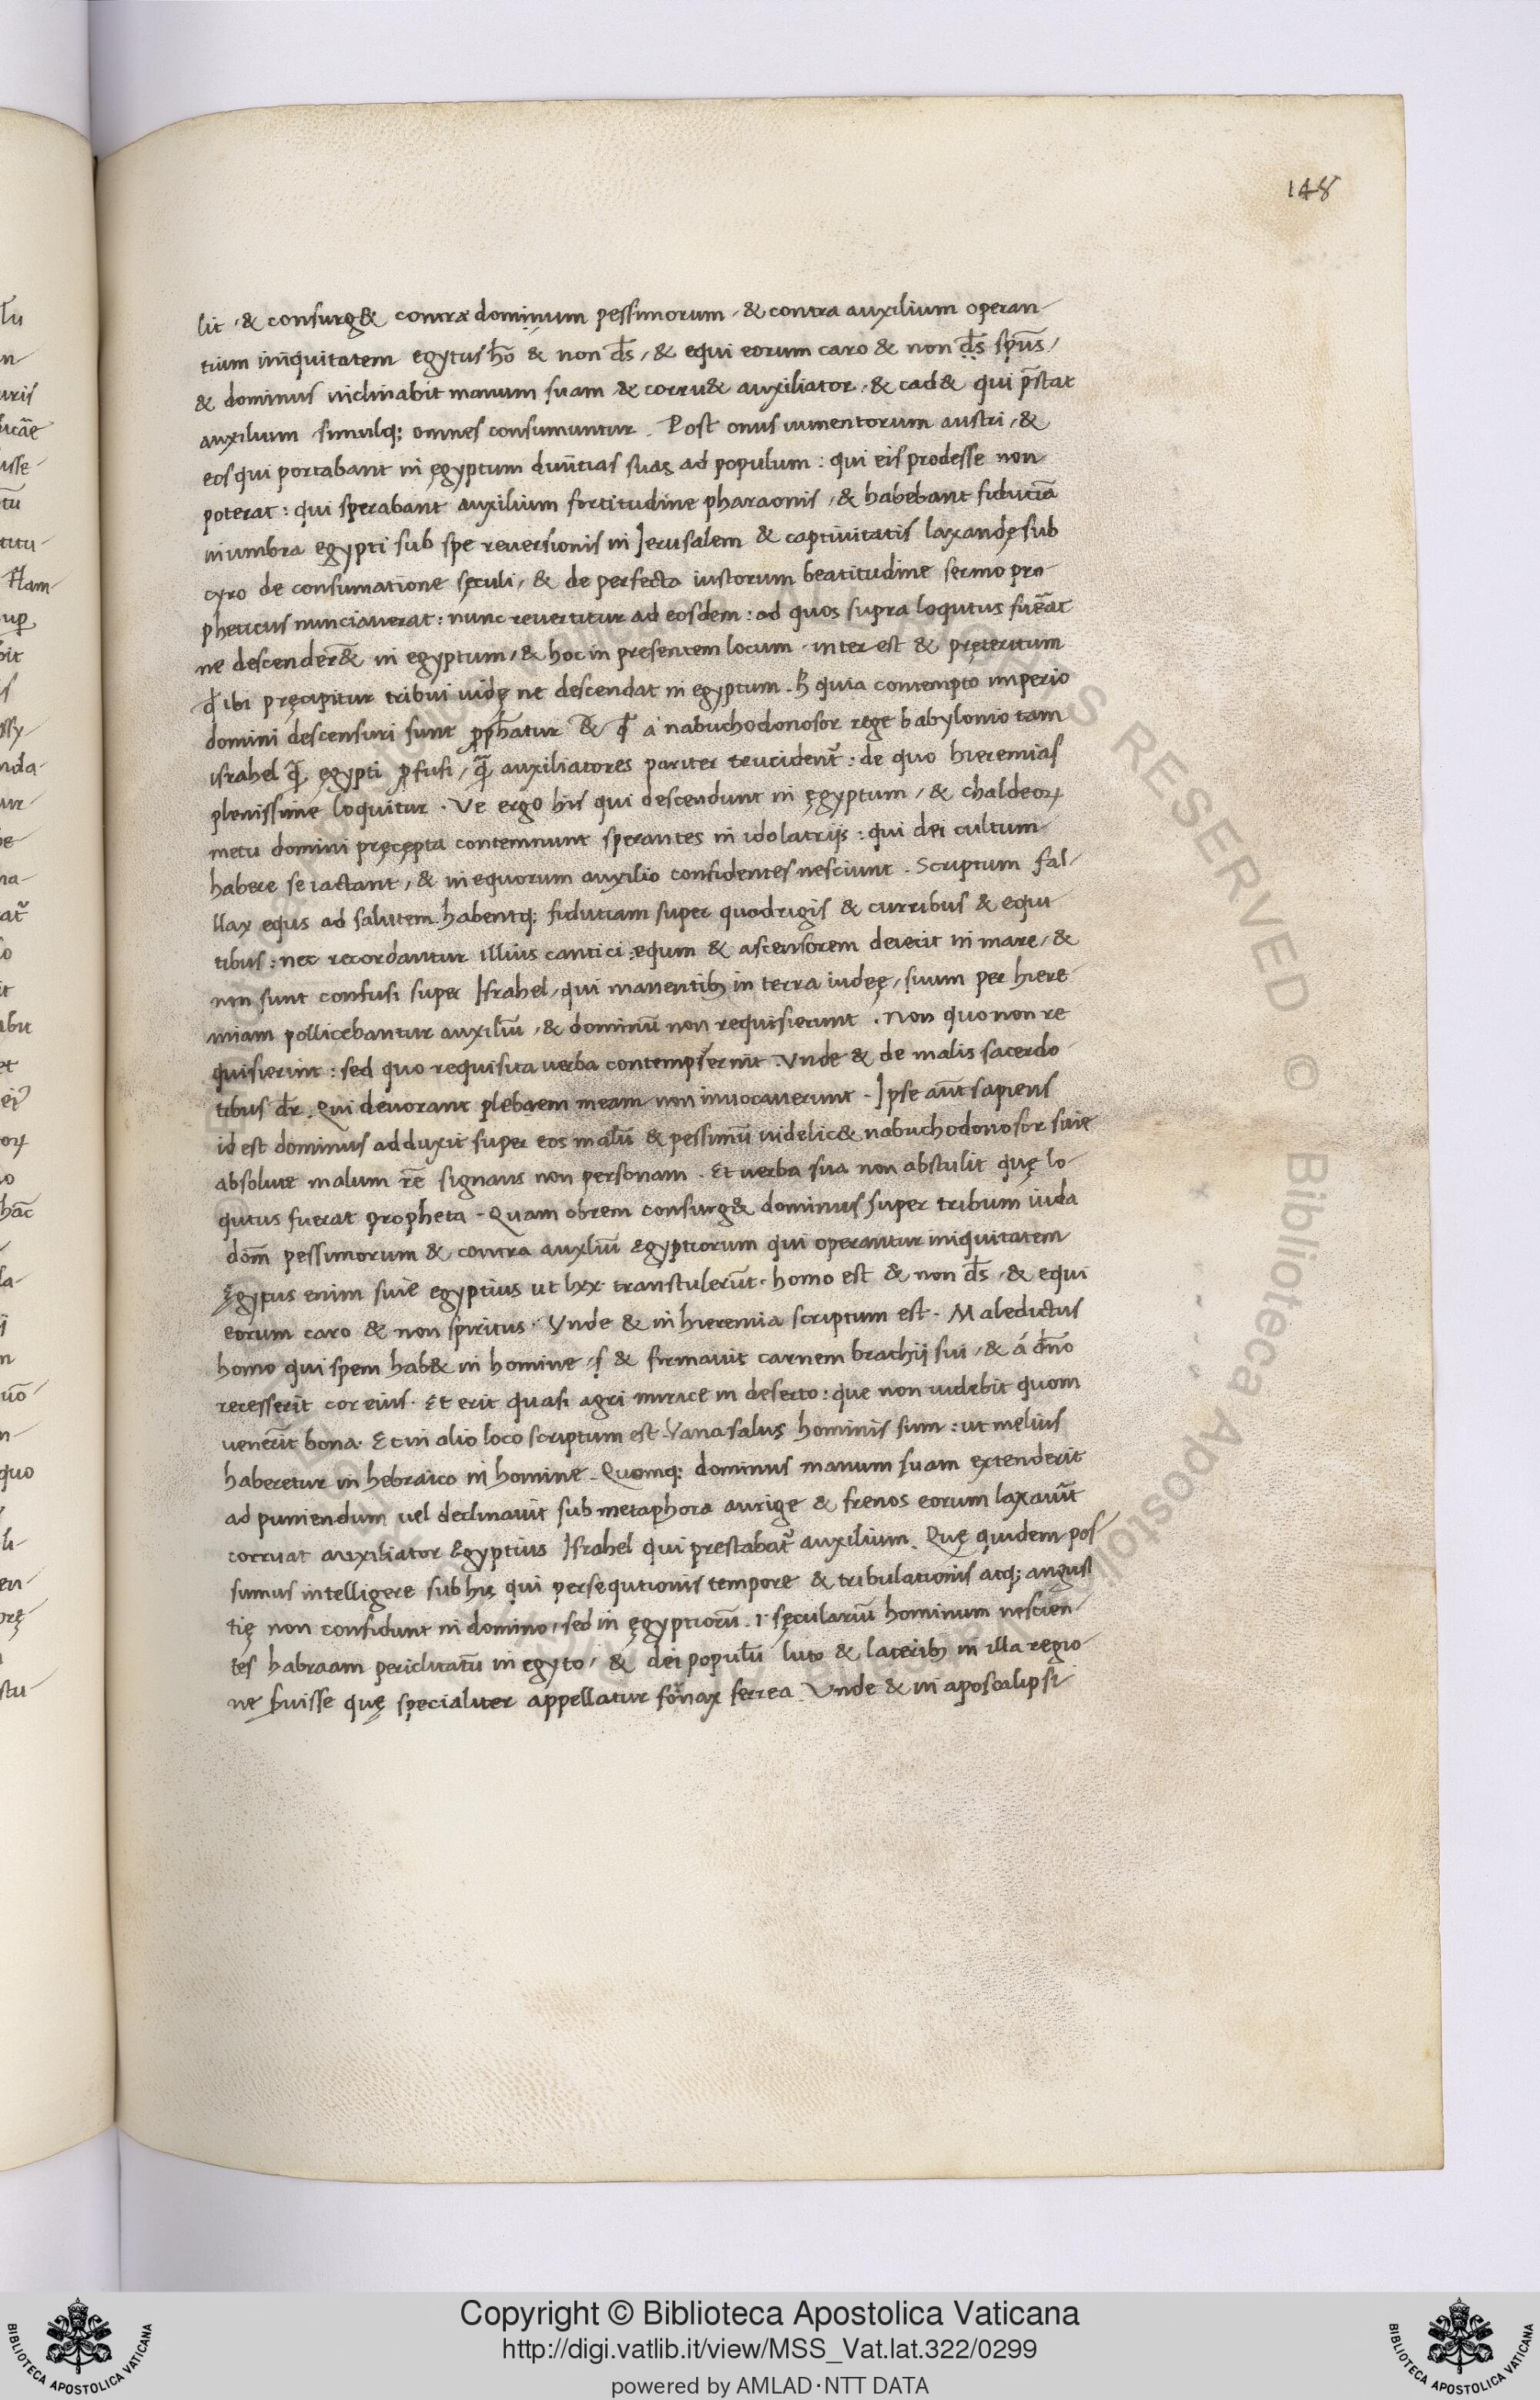 148
lit, & consurg& contra dominum pessimorum, & contra auxilium operan-
tium iniquitatem egytus hō & non d̄s, & equi eorum caro & non d̄s sp̄us,
& dominus inclinabit manum suam & corru& auxiliator, & cad& qui p̄stat
auxilium simulq; omnes consumuntur. Post onus iumentorum austri, &
eos qui portabant in ęgyptum diuitias suas ad populum: qui eis prodesse non
poterat: qui sperabant auxilium fortitudine pharaonis, & habebant fiduciā
in umbra egypti sub spe reversionis in Jerusalem & captiuitatis laxandę sub
cyro de consumatione sęculi, & de perfecta iustorum beatitudine sermo pro-
pheticus nunciauerat: nunc reuertitur ad eosdem: ad quos supra loqutus fūeat
ne descender& in egyptum, & hoc in presentem locum inter est & pręteritum
ꝙ ibi pręcipitur tribui iudę ne descendat in egyptum. h̄ quia contempto imperio
domini descensuri sunt ꝓph̄atur & ꝙ a nabuchodonosor rege babylonio tam
israhel q̄ ęgypti ꝓfusi, q̄ auxiliatores pariter trucident̄: de quo hieremias
plenissime loquitur. Ve ergo his qui descendunt in ęgyptum, & chaldeoꝝ
metu domini pręcępta contemnunt sperantes in idolatrijs: qui dei cultum
habere se iactant, & in equorum auxilio confidentes nesciunt. Scriptum fal-
llax equs ad salutem habentq; fiduciam super quadrigis & curribus & equi
tibus: nec recordantur illius cantici: equm & ascensorem deiecit in mare, &
non sunt confusi super Israhel, qui manentibꝫ in terra iudeę, suum per hiere-
miam pollicebantur auxiliū, & dominū non requisierunt. Non quo non re
quisierint: sed quo requisita uerba contempserint. Vnde & de malis sacerdo-
tibus dr̄. Qui deuorant plebaem meam non inuocauerunt. Ipse aūt sapiens
id est dominus adduxit super eos malū & pessimū uidelic& nabuchodonosor siue
absolute malum rē signans non personam. Et uerba sua non abstulit quę lo-
qutus fuerat propheta. Quam obrem consurg& dominus super tribum iuda
dom̄ pessimorum & contra auxliū Egyptiorum qui operantur iniquitatem
Ęgytus enim siue egyptius ut lxx transtulerūt. homo est & non d̄s, & equi
eorum caro & non spiritus. Vnde & in hieremia scriptum est. Maledictus
homo qui spem hab& in homine, ſ & firmauit carnem brachij sui, & á dn̄o
recesserit cor eius. Et erit quasi agri mirice in deserto: que non uidebit quom
uenerit bona. Et in alio loco scriptum est. Vana salus hominis sum: ut melius
haberetur in hebraico in homine. Quomq; dominus manum suam extenderit
ad puniendum uel declinauit sub metaphora aurige & frenos eorum laxauit̄
corruat auxiliator Egyptius Israhel qui prestabat̄ auxilium. Quę quidem pos-
sumus intelligere sub his qui persequtionis tempore & tribulationis atq; angust
tię non confidunt in domino, sed in ęgyptiorū .i. sęculariū hominum nescien-
tes habraam periclitatū in egyto, & dei populū luto & lateribꝫ in illa regio-
ne suisse quę specialiter appellatur fornax ferrea. Vnde & in aposcalipsi
Copyright © Biblioteca Apostolica Vaticana
http://digi.vatlib.it/view/MSS_Vat.lat.322/0299
powered by AMLAD·NTT DATA